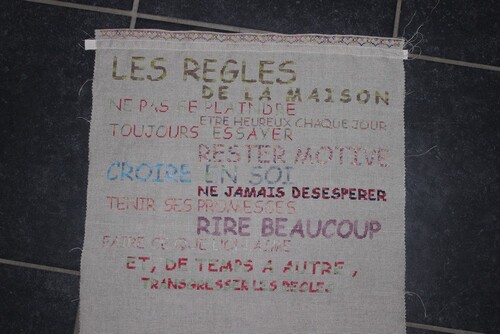 LES REGLES
DE LA MAISON
NE PAS SE PLAINDRE
ETRE HEUREUX CHAQUE JOUR
TOUJOURS ESSAYER
RESTER MOTIVE
CROIRE EN SOI
NE JAMAIS DESESPERER
TENIR SES PROMESSES
RIRE BEAUCOUP
FAIRE CE QUE L'ON AIME
ET, DE TEMPS A AUTRE,
TRANSGRESSER LES REGLES